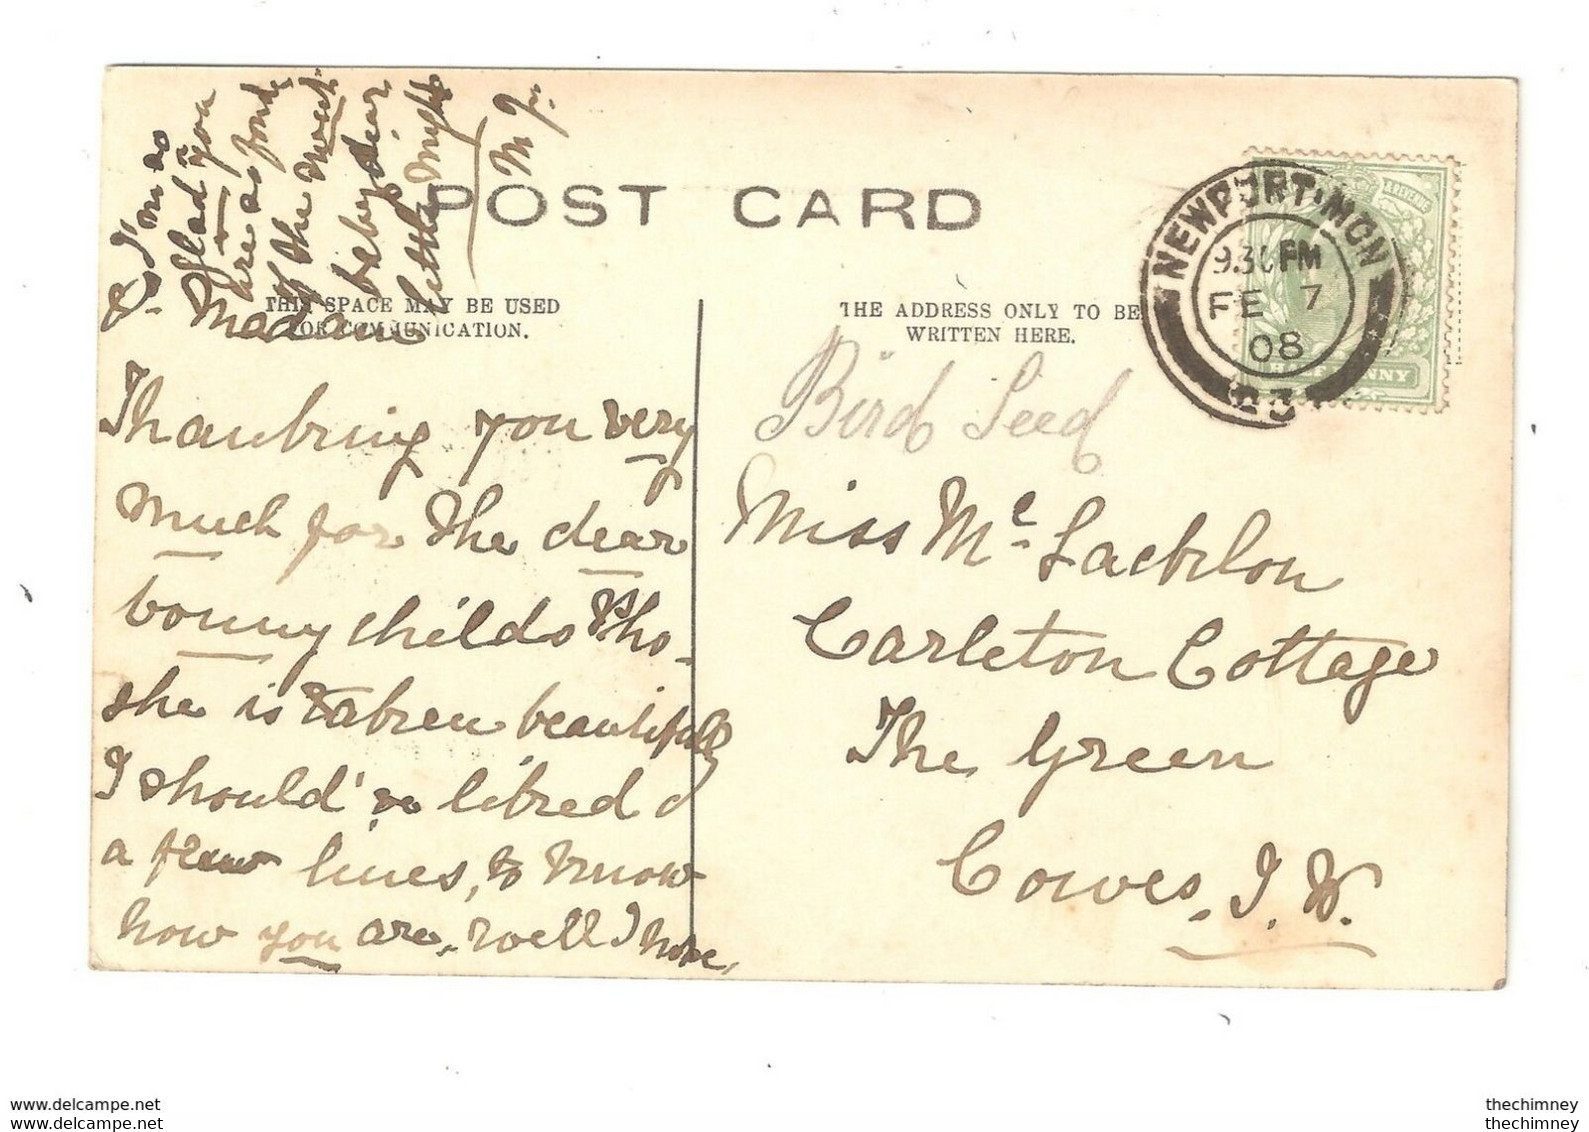 I'm so
glad you
are as fond
of the
baby dear
little mytle
M J.
POST CARD
THIS SPACE MAY BE USED
FOR COMMUNICATION.
THE ADDRESS ONLY TO BE
WRITTEN HERE.
NEWPORT·MON
9.30 PM
FE 7
08
HALF PENNY
Madam
Thanking you very
much for the dear
bonny childs Pho-
she is taken beautifully
I should so liked
a few lines, to know
how you are, well I hope,
Bird Seed
Miss Mc Lachlon
Carleton Cottage
The Green
Cowes, I. W.
www.delcampe.net
www.delcampe.net
thechimney
thechimney